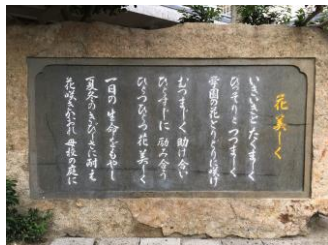 花美しく
いきいきとたくましく
ひっそりとつつましく
母園の花とりどりに咲け
むつましく助け合い
ひたすらに励み合う
ひとつひとつ花美しく
一日の生命をもやし
夏冬のきびしさに耐え
花咲きかおれ母校の庭に